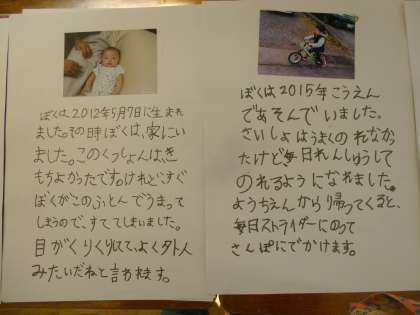 ぼくは2012年5月7日に生まれ
ました。その時ぼくは、家にい
ました。このくっしょんは、き
もちよかったです。けれど、すぐ
ぼくがこのふとんでうまって
しまうので、すててしまいました。
目がくりくりしてて、よく外人
みたいだねと言われます。
ぼくは2015年こうえん
であそんでいました。
さいしょはうまくのれなか
ったけど毎日れんしゅうして
のれるようになれました。
ようちえんから帰ってくると、
毎日ストライダーにのって
さんぽにでかけます。